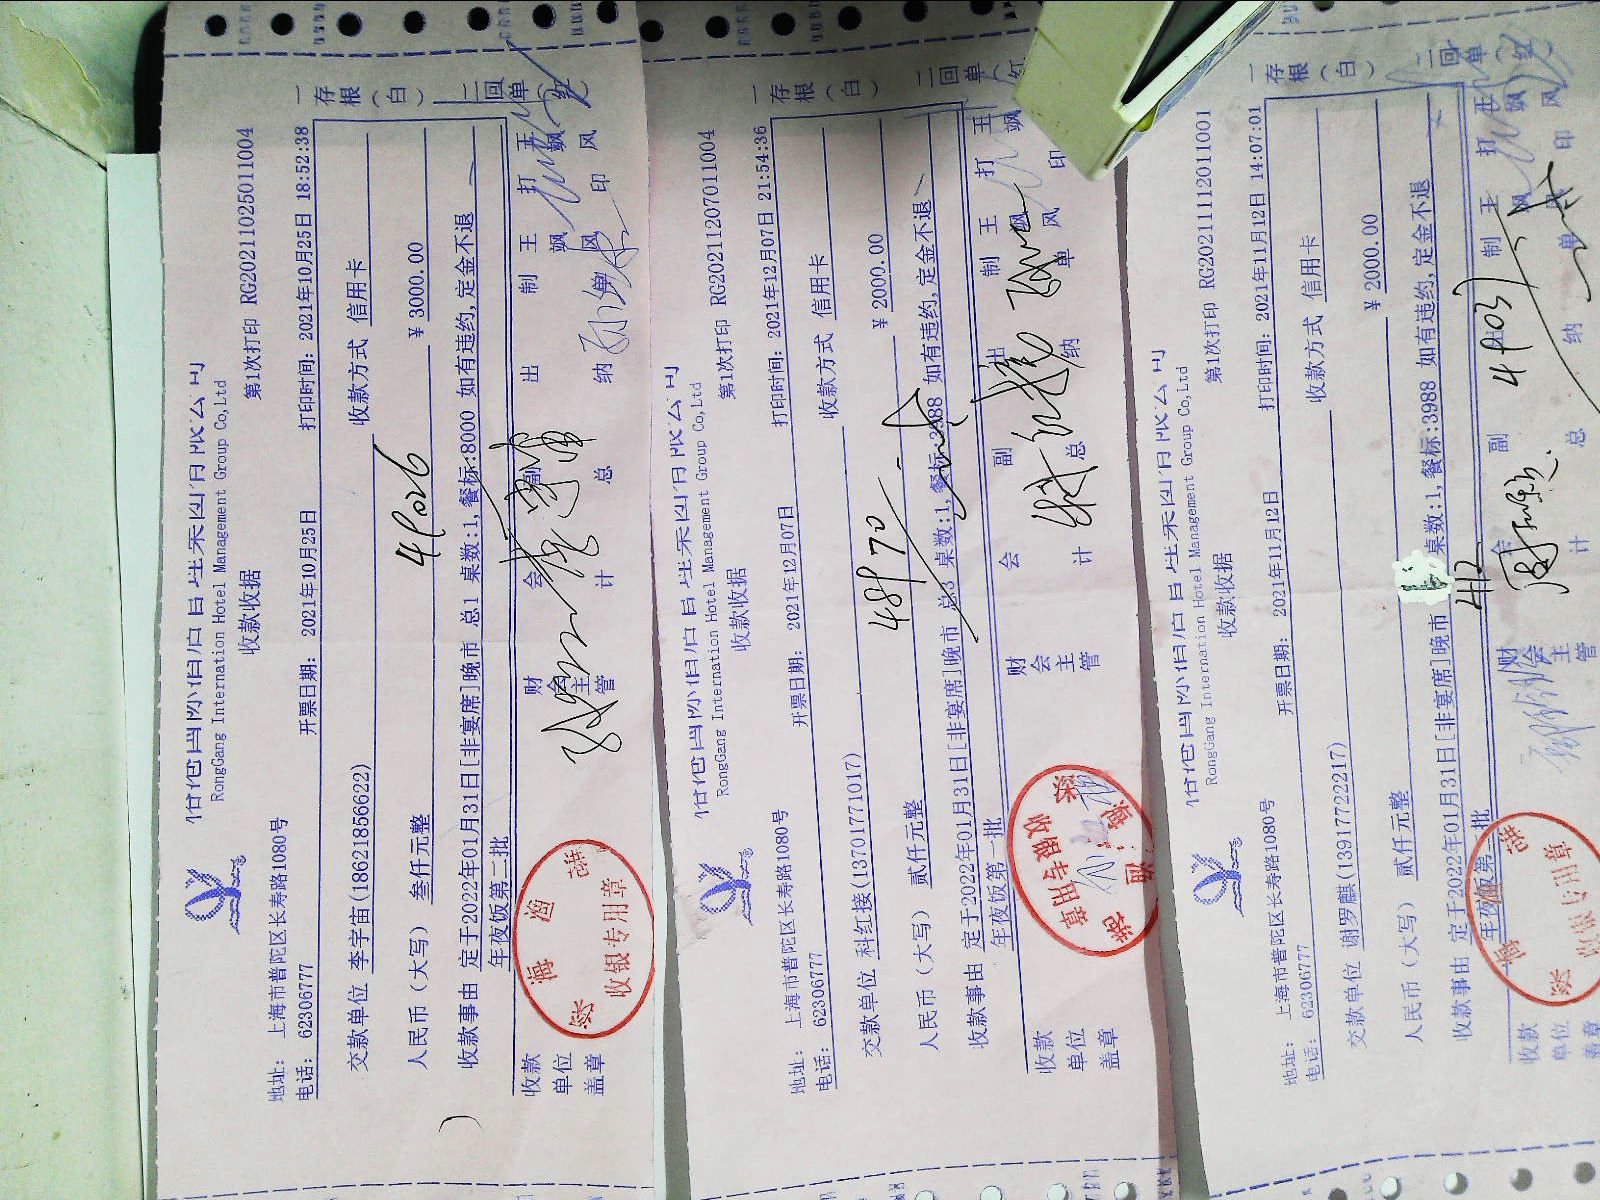 RongGang Internation Hotel Management Group Co,Ltd
收款收据
第1次打印 RG20211025011004
地址: 上海市普陀区长寿路1080号
电话: 62306777
开票日期: 2021年10月25日
打印时间: 2021年10月25日 18:52:38
交款单位 李宇宙(18621856622)
收款方式 信用卡
人民币(大写) 叁仟元整
¥ 3000.00
4P026
收款事由 定于2022年01月31日[非宴席]晚市 总1 桌数:1,餐标:8000 如有违约,定金不退
年夜饭第二批
收款单位盖章
财会主管
会计
副总
出纳
制单 王飒风
打印 王飒风
收银专用章
一存根(白)
二回单
RongGang Internation Hotel Management Group Co,Ltd
收款收据
第1次打印 RG20211207011004
地址: 上海市普陀区长寿路1080号
电话: 62306777
开票日期: 2021年12月07日
打印时间: 2021年12月07日 21:54:36
交款单位 科红接(13701771017)
收款方式 信用卡
人民币(大写) 贰仟元整
¥ 2000.00
48P70
收款事由 定于2022年01月31日[非宴席]晚市 总3 桌数:1,餐标:3988 如有违约,定金不退
年夜饭第一批
收款单位盖章
财会主管
会计
副总
出纳
制单 王飒风
打印
收银专用章
一存根(白)
二回单(红
RongGang Internation Hotel Management Group Co,Ltd
收款收据
第1次打印 RG20211112011001
地址: 上海市普陀区长寿路1080号
电话: 62306777
开票日期: 2021年11月12日
打印时间: 2021年11月12日 14:07:01
交款单位 谢罗麒(13917722217)
收款方式 信用卡
人民币(大写) 贰仟元整
¥ 2000.00
收款事由 定于2022年01月31日[非宴席]晚市 桌数:1,餐标:3988 如有违约,定金不退
412
4P037
年夜饭第一批
收款单位盖章
财会主管
会计
副总
出纳
制单
打印
收银专用章
一存根(白)
二回单